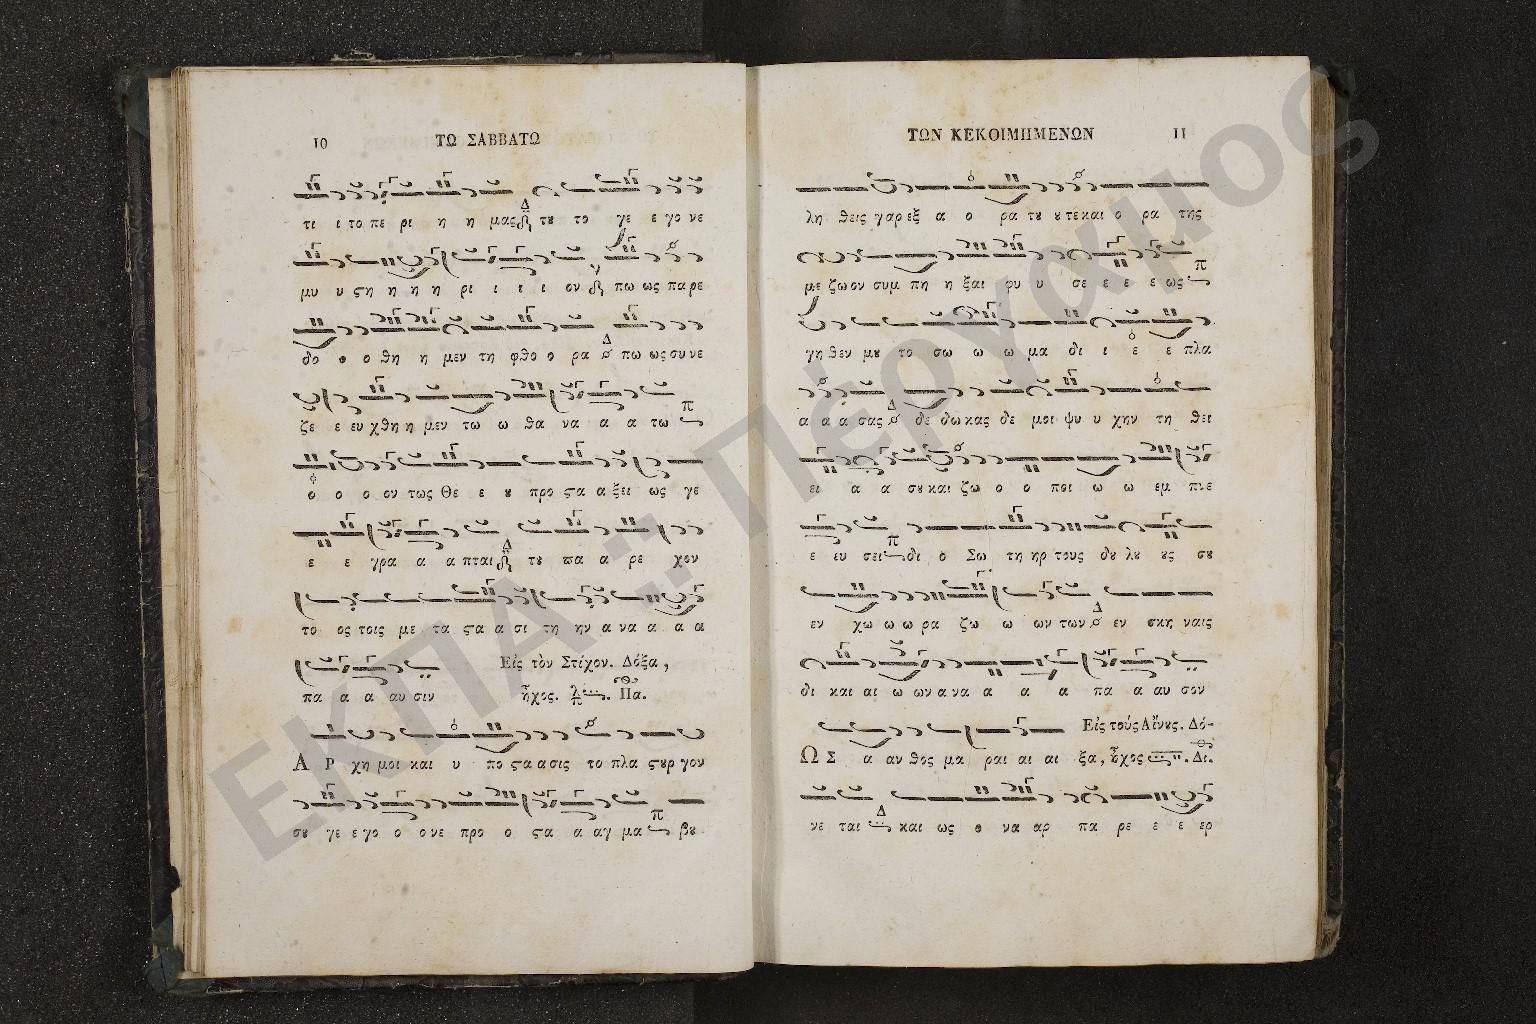 10 ΤΩ ΣΑΒΒΑΤΩ
τι ι το πε ρι η η μας τȣ το γε ε γο νε
μυ υ ϛη η η η ρι ι ι ι ον πω ως πα ρε
δο ο ο θη η μεν τη φθο ο ρα πω ως συ νε
ζε ε ευ χθη η μεν τω ω θα να α α τω
ο ο ο ον τως Θε ε ȣ προ ϛα α ξει ως γε
ε ε γρα α α πται τȣ πα α ρε χον
το ος τοις με τα ϛα α σι τη ην α να α α α
Εἰς τὸν Στίχον. Δόξα,
πα α α αυ σιν ἦχος. Πα.
Α Ρ χη μοι και υ πο ϛα α σις το πλα ϛȣρ γον
σȣ γε ε γο ο ο νε προ ο ϛα α αγ μα βȣ
ΤΩΝ ΚΕΚΟΙΜΗΜΕΝΩΝ 11
λη θεις γαρ εξ α ο ρα τȣ ȣ τε και ο ρα της
με ζωον συμ πη η ξαι φυ υ σε ε ε ε ως
γη θεν μȣ το σω ω ω μα δι ι ε ε πλα
α α α σας δε δω κας δε μοι ψυ υ χην τη θει
ει α α σȣ και ζω ο ο ποι ω ω εμ πνε
ε ευ σει δι ο Σω τη ηρ τους δȣ λȣ ȣς σȣ
εν χω ω ω ρα ζω ω ων των εν σκη ναις
δι και αι ω ων α να α α α πα α αυ σον
Εἰς τοὺς Αἴνȣς. Δό-
Ω Σ α αν θος μα ραι αι αι ξα, ἦχος Δι.
νε ται και ως ο να αρ πα ρε ε ε ερ
ΕΚΠΑ :: Πέργαμος